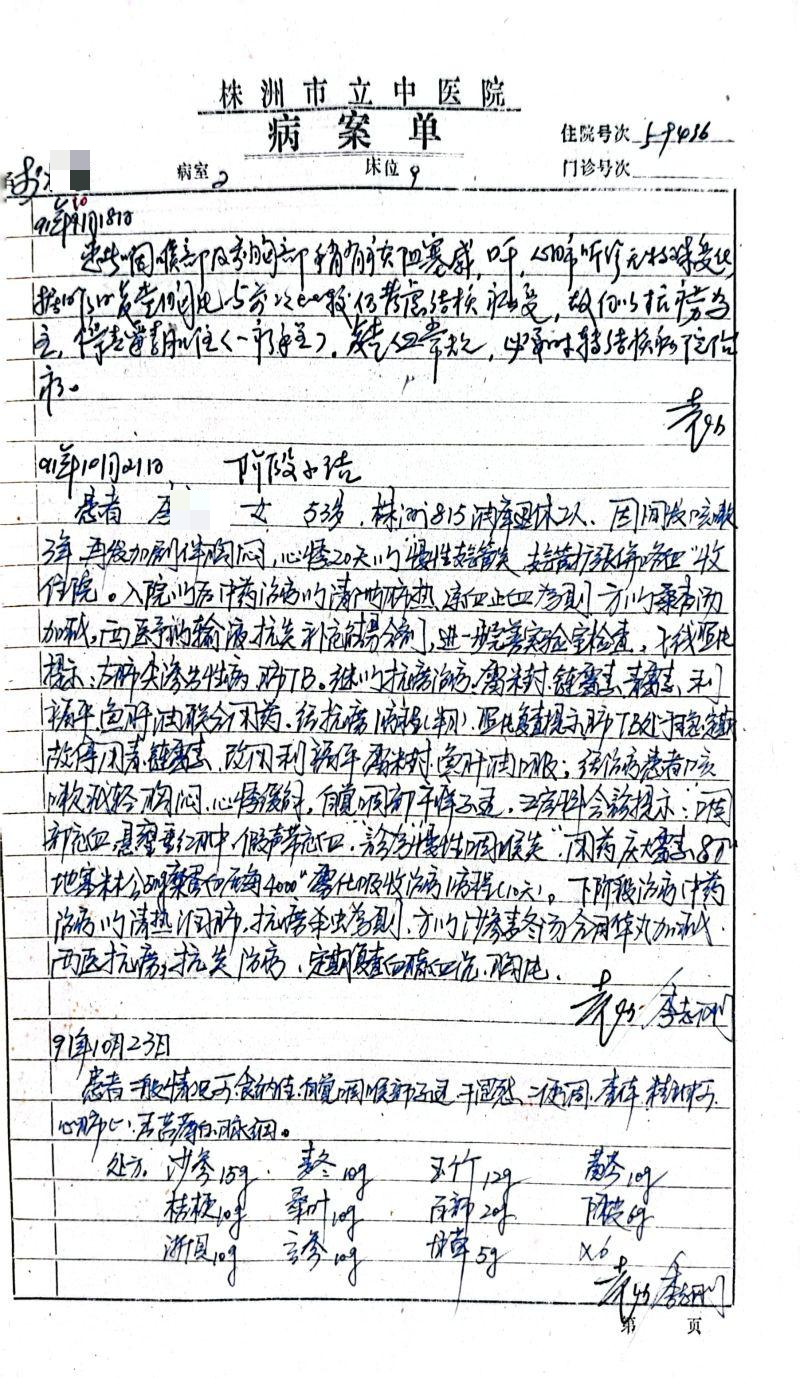 株洲市立中医院
病案单
住院号次 59436
病室 2 床位 9 门诊号次
91年10月18日
患者咽喉部及 胸部稍有 阻塞感,口干,心肺听诊无特殊变化,
胸片 与前次比较仍考虑结核 ,故仍以抗痨为
主,停 肌注(一疗程), 必要时转结核 院治
疗。
91年10月21日 阶段小结
患者 女 53岁,株洲815油库退休工人、因间发咳嗽
3年,再发加剧伴胸闷,心悸20天以“慢性支气管炎 支气管扩张併咯血”收
住院。入院以后中药治疗以清 肺热 凉血止血为则 方以桑杏汤
加减,西医予以输液 抗炎 补充能量合剂,进一步完善实验室检查。 线照片
提示:左肺尖渗出性病 肺TB。继以抗痨治疗,雷米封 链霉素 青霉素 利
福平 鱼肝油联合用药,经抗痨1疗程(半月),照片复查提示肺TB处于稳定期
故停用青链霉素,改用利福平 雷米封 鱼肝油口服;经治疗患者咳
嗽减轻 胸闷、心悸缓解,自觉咽部干痒不适,五官科会诊提示:“咽
部充血,悬壅垂红肿,假声带充血”,诊为“慢性咽喉炎”,用药庆大霉素8万
地塞米松 糜蛋白酶 4000u 雾化吸收治疗1疗程(10天)。下阶段治疗:中药
治疗以清热润肺,抗痨杀虫为则,方以沙参麦冬汤合月华丸加减,
西医抗痨,抗炎治疗、定期复查血 血沉、胸片。
91年10月23日
患者一般情况可,食纳佳,自觉咽喉部不适,干涩感,二便调,查体:精神可,
心肺(-),舌 苔薄白,脉细。
处方:沙参15g 麦冬10g 玉竹12g 黄芩10g
桔梗10g 桑叶10g 百部20g 陈皮6g
浙贝10g 玄参10g 甘草5g ×6
第 页